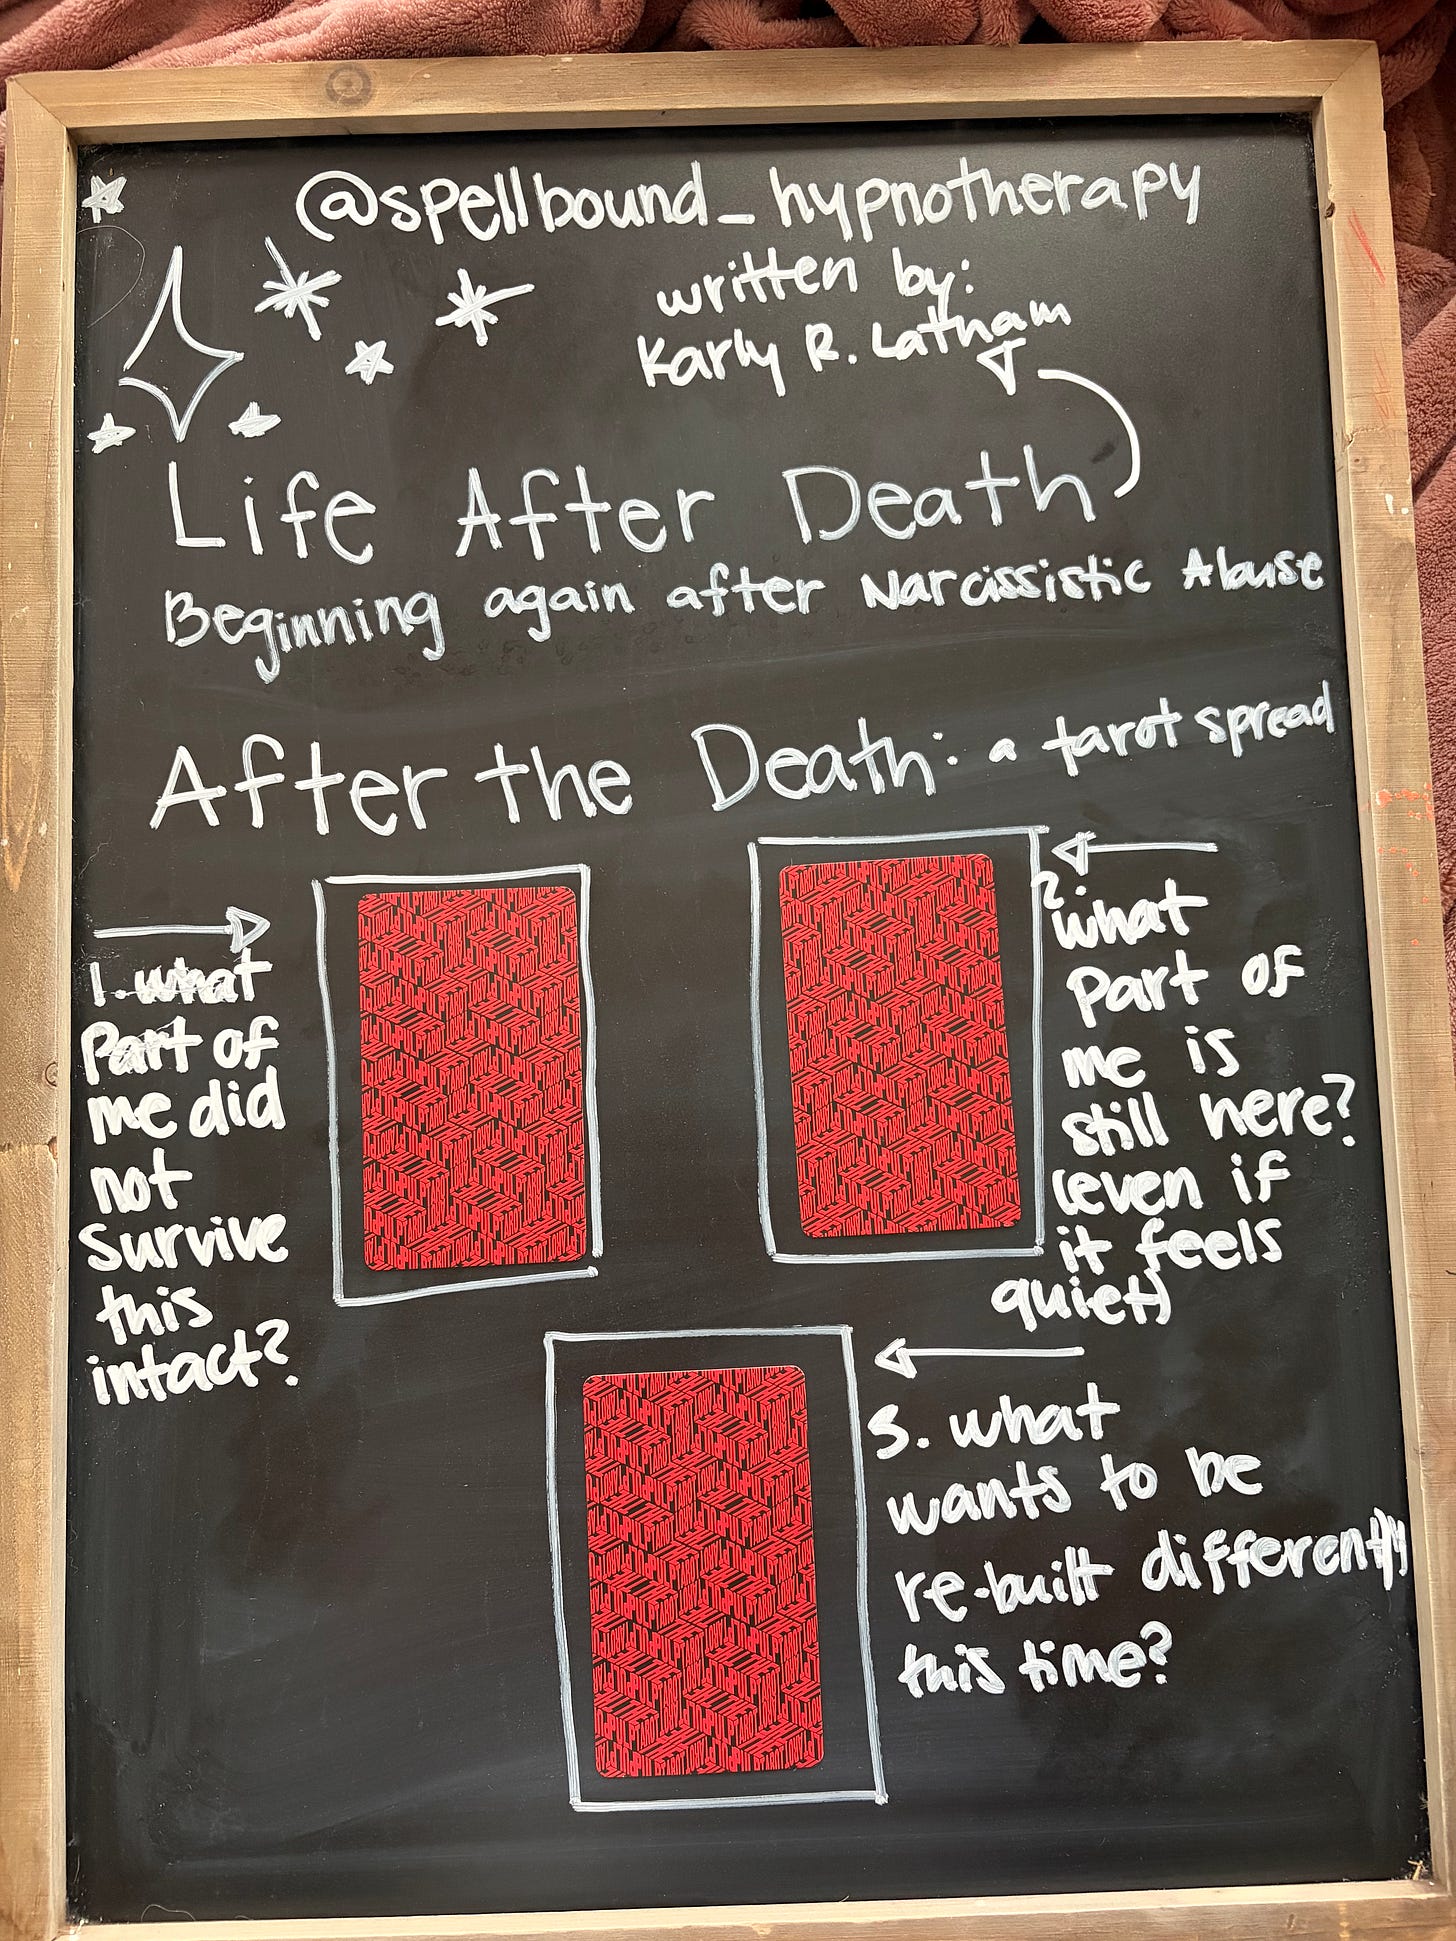 @spellbound_hypnotherapy
written by:
Karly R. Latham
Life After Death
Beginning again after Narcissistic Abuse
After the Death: a tarot spread
1. what
Part of
me did
not
survive
this
intact?
2.
what
Part of
me is
still here?
(even if
it feels
quiet)
3. what
wants to be
re-built differently
this time?